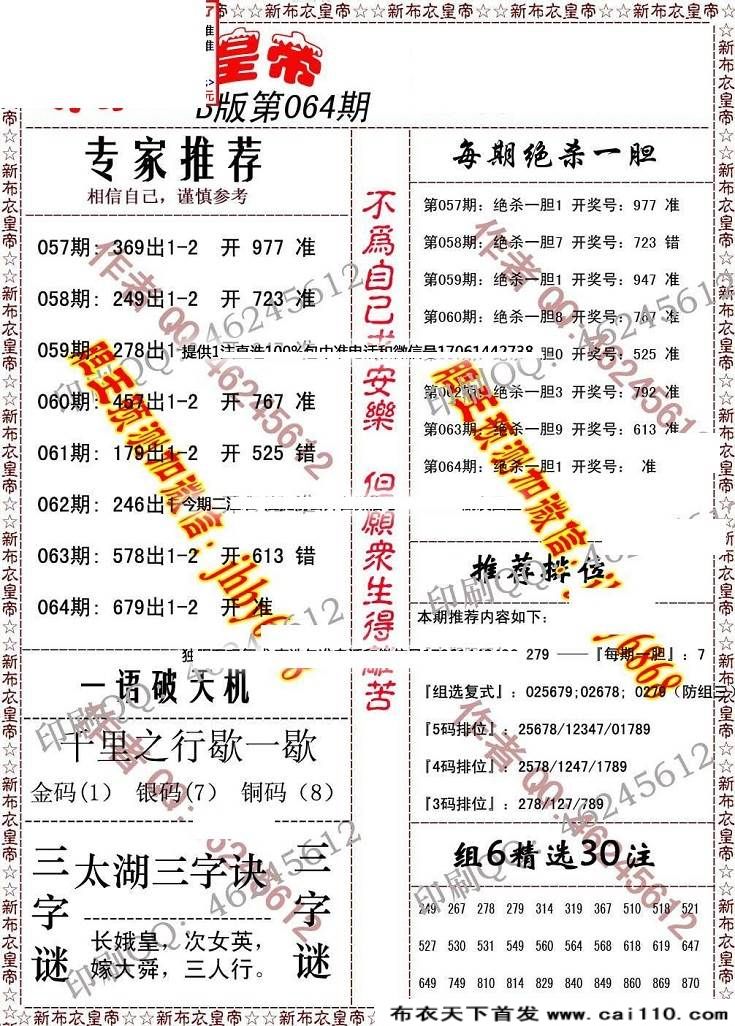 ☆新布衣皇帝☆☆新布衣皇帝☆☆新布衣皇帝☆☆新布衣皇帝☆
皇帝
B版第064期
专家推荐
相信自己，谨慎参考
057期: 369出1-2 开 977 准
058期: 249出1-2 开 723 准
059期: 278出1
提供1注直选100%包中准电话和微信号17061442738
060期: 457出1-2 开 767 准
061期: 179出1-2 开 525 错
062期: 246出1
今期二注
准
063期: 578出1-2 开 613 错
064期: 679出1-2 开 准
一语破天机
千里之行歇一歇
金码(1) 银码(7) 铜码（8）
三字谜
太湖三字诀
长娥皇，次女英，
嫁大舜，三人行。
三字谜
不爲自己求安樂 但願衆生得離苦
每期绝杀一胆
第057期: 绝杀一胆1 开奖号: 977 准
第058期: 绝杀一胆7 开奖号: 723 错
第059期: 绝杀一胆1 开奖号: 947 准
第060期: 绝杀一胆8 开奖号: 767 准
胆0 开奖号: 525 准
第062期: 绝杀一胆3 开奖号: 792 准
第063期: 绝杀一胆9 开奖号: 613 准
第064期: 绝杀一胆1 开奖号: 准
推荐排位
本期推荐内容如下:
279 ——『每期一胆』: 7
『组选复式』: 025679;02678; 0279（防组三）
『5码排位』: 25678/12347/01789
『4码排位』: 2578/1247/1789
『3码排位』: 278/127/789
组6精选30注
249 267 278 279 314 319 367 510 518 521
527 530 531 549 560 564 568 618 619 647
649 749 810 814 819 840 849 860 869 870
作者 QQ: 46245612
印刷QQ: 46245612
布衣天下首发 www.cai110.com